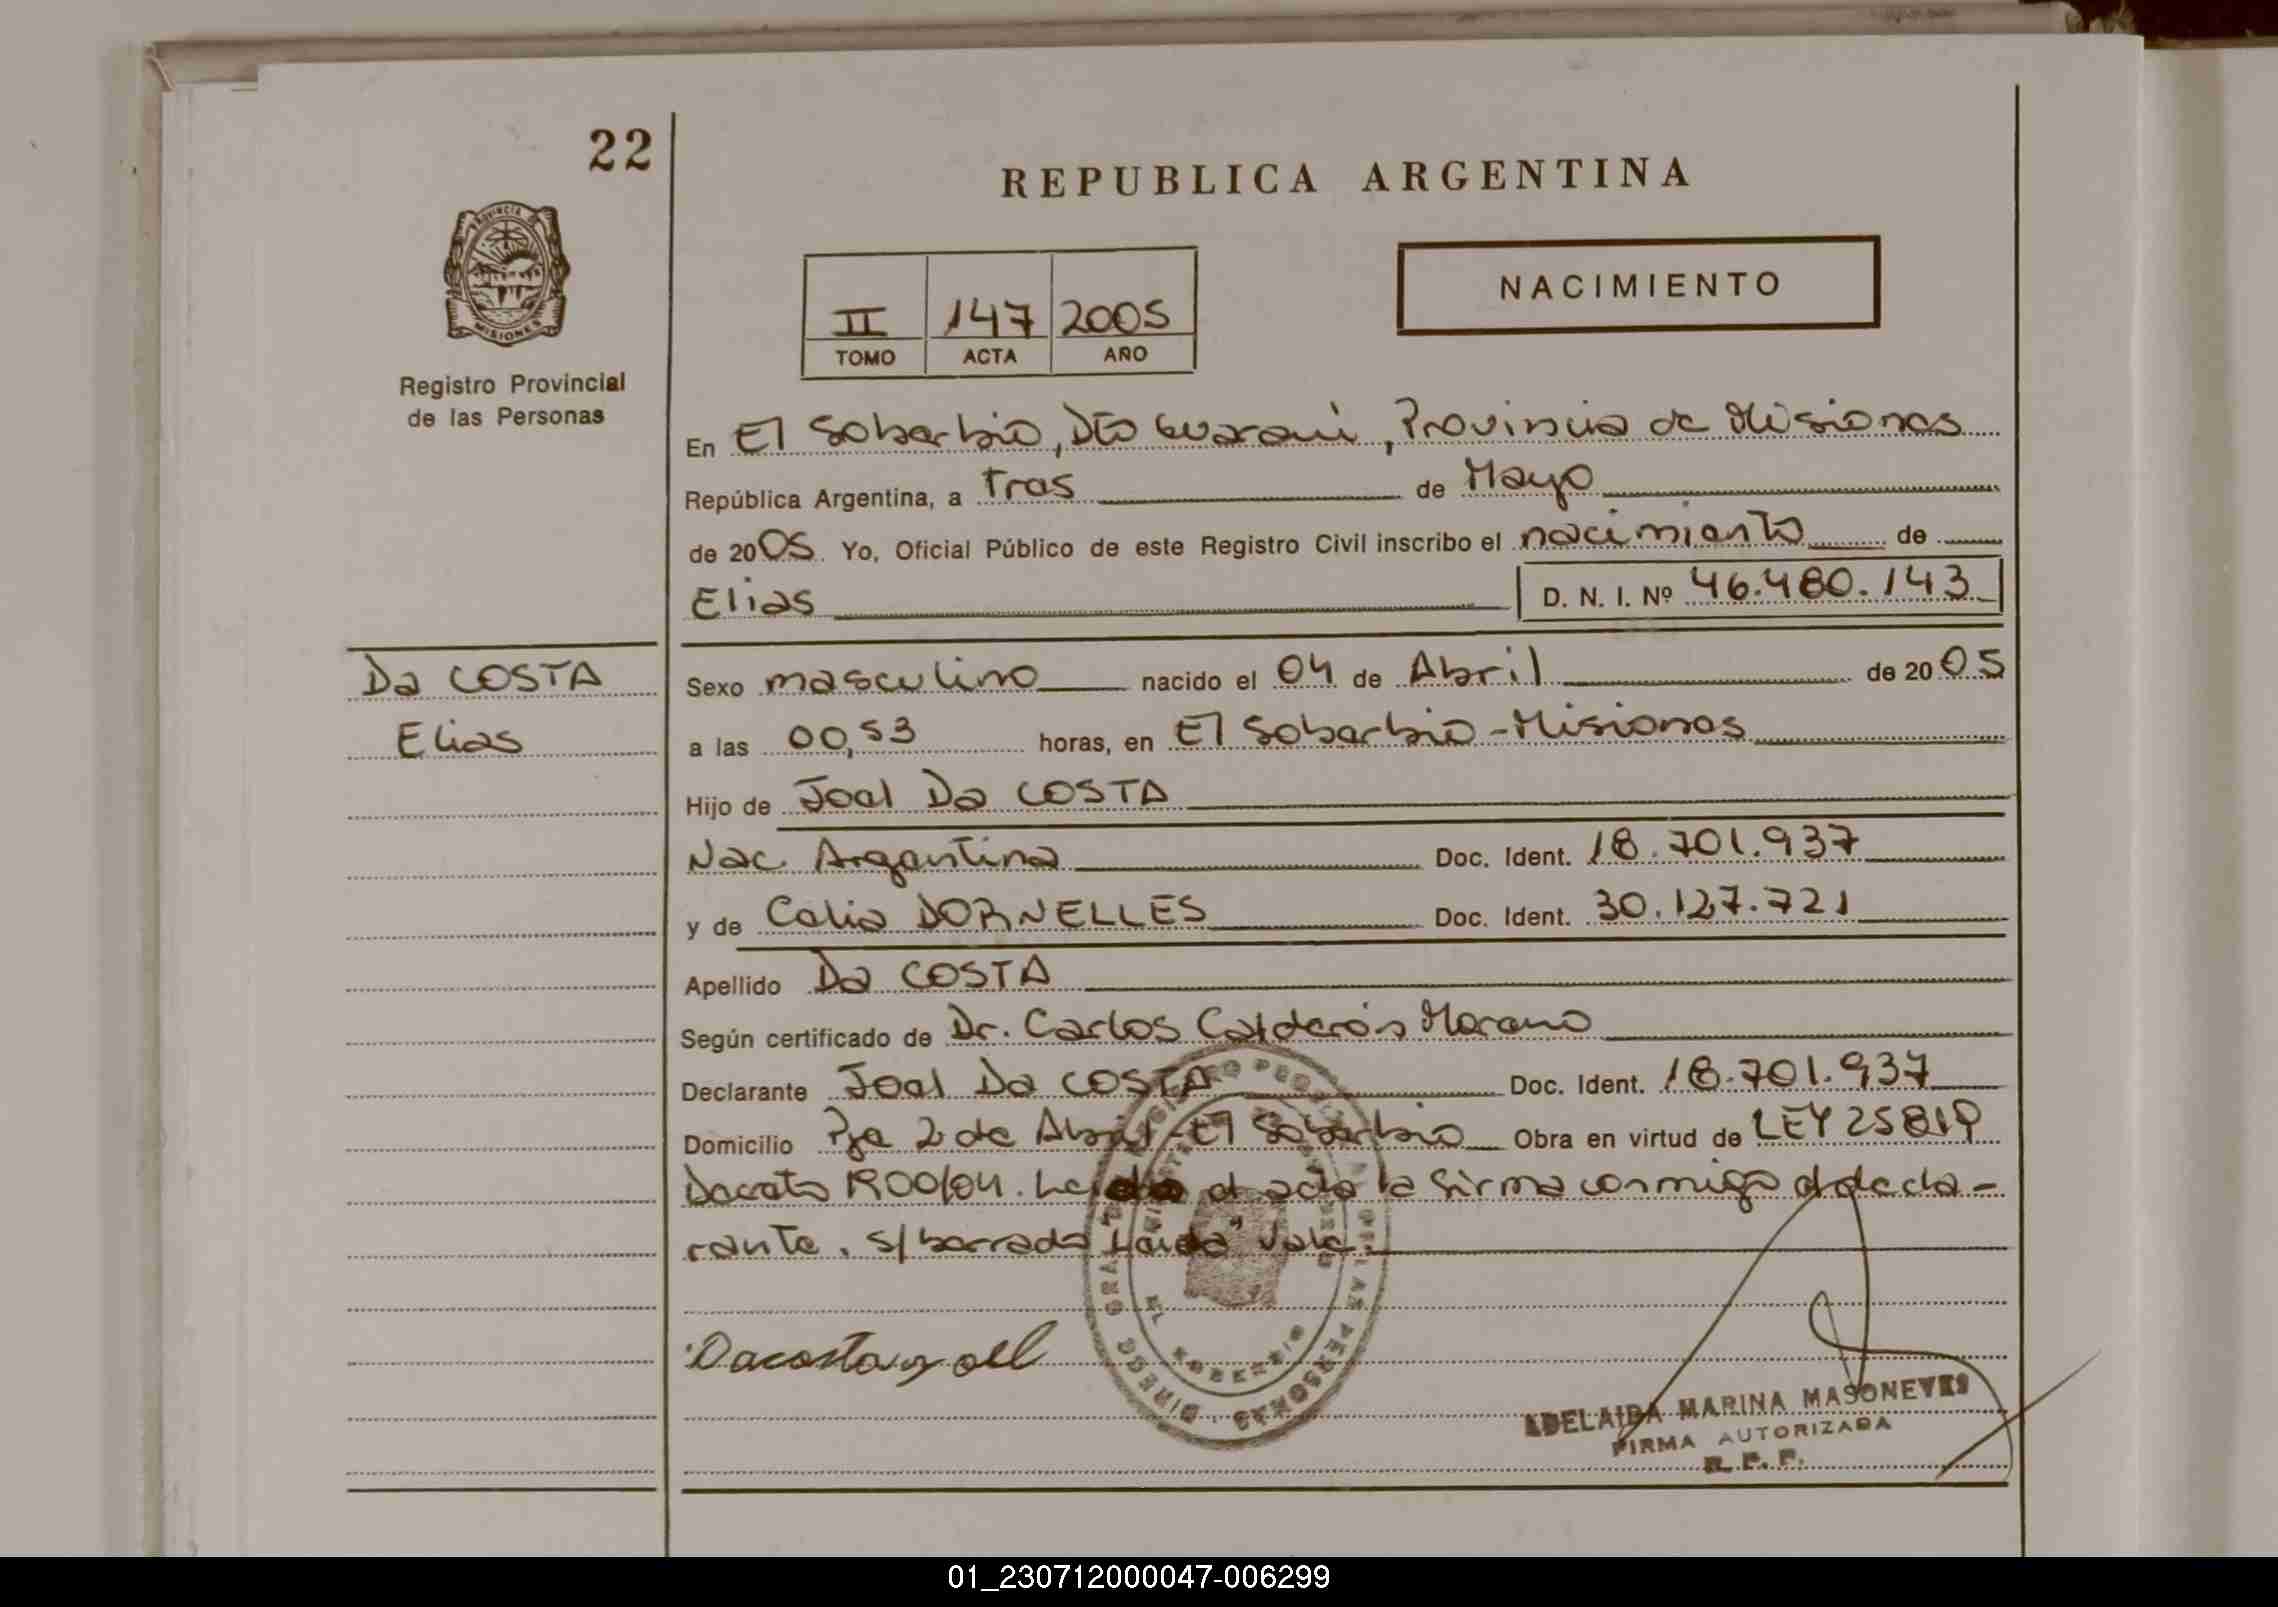 22
REPUBLICA ARGENTINA
PROVINCIA DE
MISIONES
Registro Provincial
de las Personas
II 147 2005
TOMO ACTA AÑO
NACIMIENTO
En El Soberbio, Dto Guarani, Provincia de Misiones
República Argentina, a Tres de Mayo
de 2005. Yo, Oficial Público de este Registro Civil inscribo el nacimiento de
Elias D. N. I. Nº 46.480.143
Da COSTA
Elias
Sexo masculino nacido el 04 de Abril de 2005
a las 00,53 horas, en El Soberbio - Misiones
Hijo de Joel Da COSTA
Nac. Argentina Doc. Ident. 18.701.937
y de Celia DORNELLES Doc. Ident. 30.127.721
Apellido Da COSTA
Según certificado de Dr. Carlos Calderón Moreno
Declarante Joel Da COSTA Doc. Ident. 18.701.937
Domicilio Pje 2 de Abril - El Soberbio Obra en virtud de LEY 25819
Decreto 1200/04. Leida el acta la firma conmigo el decla-
rante. s/borrado "Leida" Vale.
Dacosta Joel
EL SOBERBIO
ADELAIDA MARINA MASONEVES
FIRMA AUTORIZADA
R. P. P.
01_230712000047-006299